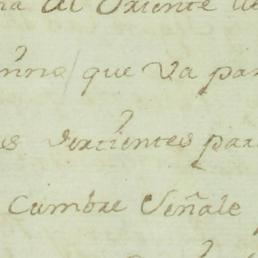 na al Oriente
que va par
es vertientes par
Cumbre Señale